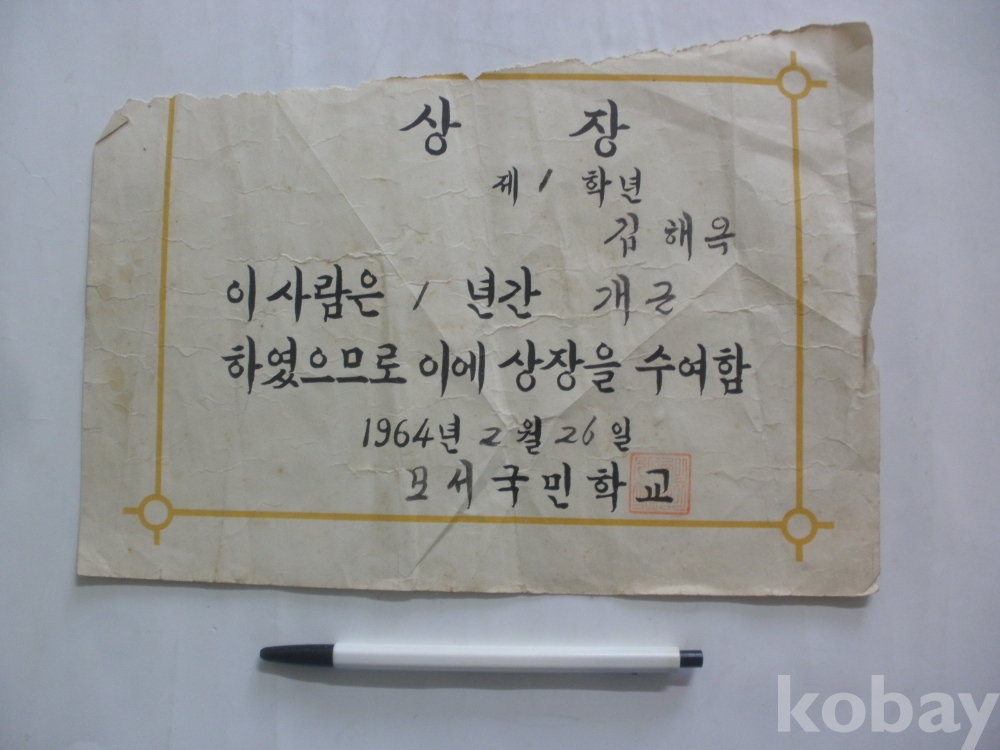 상 장
제 1 학년
김해옥
이 사람은 1 년간 개근
하였으므로 이에 상장을 수여함
1964년 2월 26일
모서국민학교
kobay